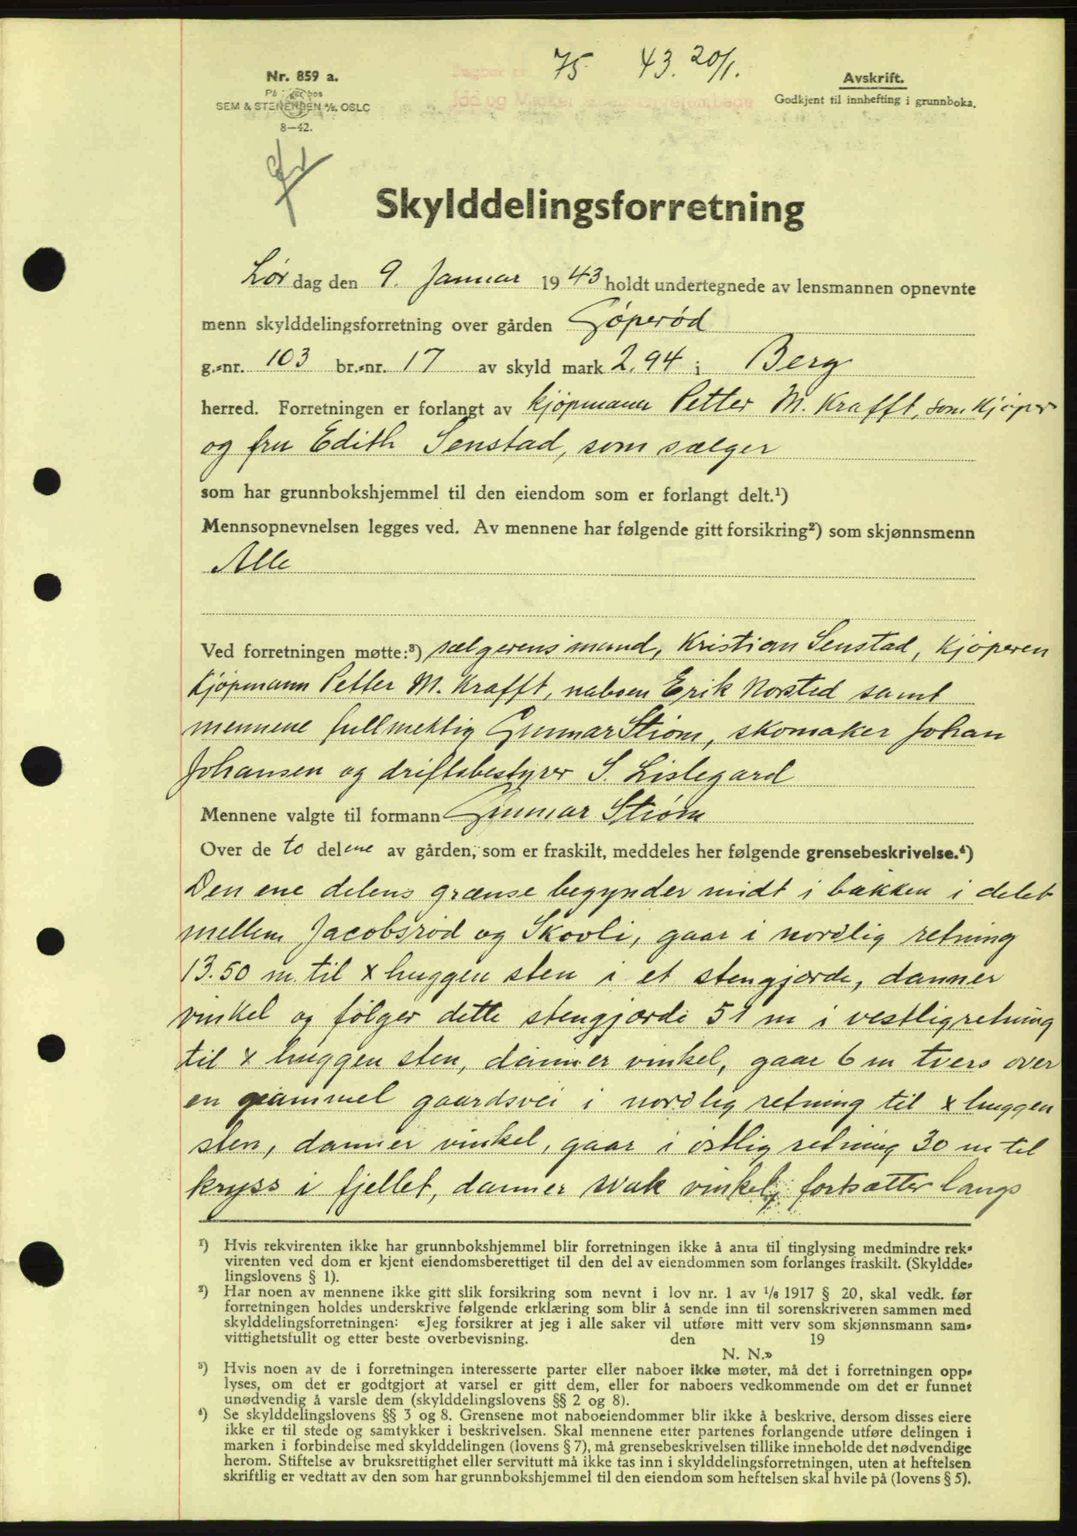 75 43. 20/1.
Nr. 859 a.
SEM & STENERSEN A/S, OSLO
8—42.
Avskrift.
Godkjent til innhefting i grunnboka.
Skylddelingsforretning
Lør dag den 9. Januar 1943 holdt undertegnede av lensmannen opnevnte
menn skylddelingsforretning over gården Göperöd
g.-nr. 103 br.-nr. 17 av skyld mark 2,94 i Berg
herred. Forretningen er forlangt av kjöpmann Petter M. Krafft, som kjöper
og fru Edith Senstad, som sælger
som har grunnbokshjemmel til den eiendom som er forlangt delt.¹)
Mennsopnevnelsen legges ved. Av mennene har følgende gitt forsikring²) som skjønnsmenn
Alle
Ved forretningen møtte:³) sælgerens mand, Kristian Senstad, kjöperen
kjöpmann Petter M. Krafft, naboen Erik Norsted samt
mennene fullmektig Gunnar Strøm, skomaker Johan
Johansen og driftsbestyrer S. Lislegard
Mennene valgte til formann Gunnar Strøm
Over de to delene av gården, som er fraskilt, meddeles her følgende grensebeskrivelse.⁴)
Den ene delens grænse begynder midt i bakken i delet
mellem Jacobsröd og Skovli, gaar i nordlig retning
13.50 m. til x huggen sten i et stengjærde, danner
vinkel og følger dette stengjærde 51 m i vestlig retning
til x huggen sten, danner vinkel, gaar 6 m tvers over
en gammel gaardsvei i nordlig retning til x huggen
sten, danner vinkel, gaar i östlig retning 30 m til
kryss i fjellet, danner svak vinkel, fortsætter langs
¹) Hvis rekvirenten ikke har grunnbokshjemmel blir forretningen ikke å anta til tinglysing medmindre rek-
virenten ved dom er kjent eiendomsberettiget til den del av eiendommen som forlanges fraskilt. (Skyldde-
lingslovens § 1).
²) Har noen av mennene ikke gitt slik forsikring som nevnt i lov nr. 1 av 1/6 1917 § 20, skal vedk. før
forretningen holdes underskrive følgende erklæring som blir å sende inn til sorenskriveren sammen med
skylddelingsforretningen: «Jeg forsikrer at jeg i alle saker vil utføre mitt verv som skjønnsmann sam-
vittighetsfullt og etter beste overbevisning. den 19
N. N.»
³) Hvis noen av de i forretningen interesserte parter eller naboer ikke møter, må det i forretningen opp-
lyses, om det er godtgjort at varsel er gitt dem, eller for naboers vedkommende om det er funnet
unødvendig å varsle dem (skylddelingslovens §§ 2 og 8).
⁴) Se skylddelingslovens §§ 3 og 8. Grensene mot naboeiendommer blir ikke å beskrive, dersom disses eiere
ikke er til stede og samtykker i beskrivelsen. Skal mennene etter partenes forlangende utføre delingen i
marken i forbindelse med skylddelingen (lovens § 7), må grensebeskrivelsen tillike inneholde det nødvendige
herom. Stiftelse av bruksrettighet eller servitutt må ikke tas inn i skylddelingsforretningen, uten at heftelsen
skriftlig er vedtatt av den som har grunnbokshjemmel til den eiendom som heftelsen skal hvile på (lovens § 5).